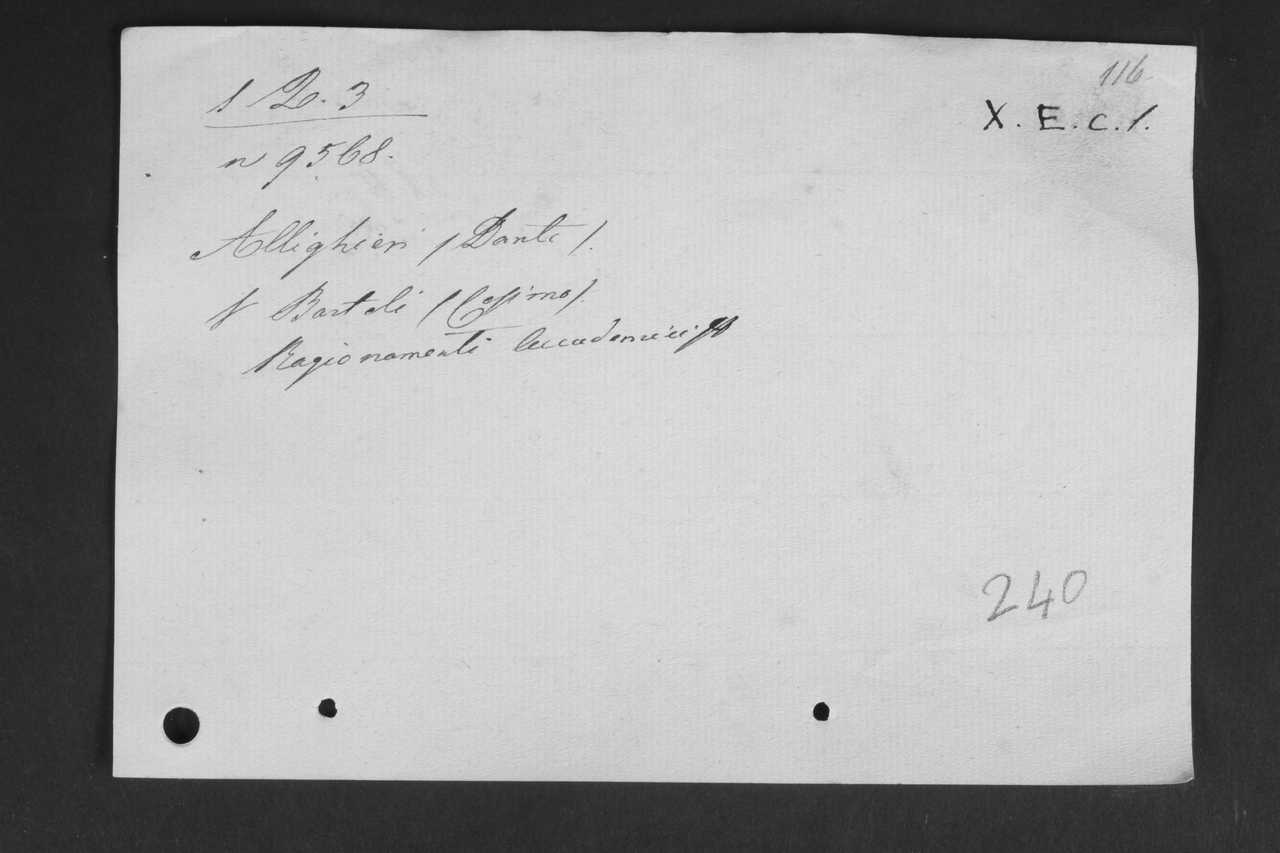 116
X. E. c. 1.
1 D. 3
n 9568.
Allighieri (Dante).
V Bartoli (Cosimo).
Ragionamenti Accademici
240